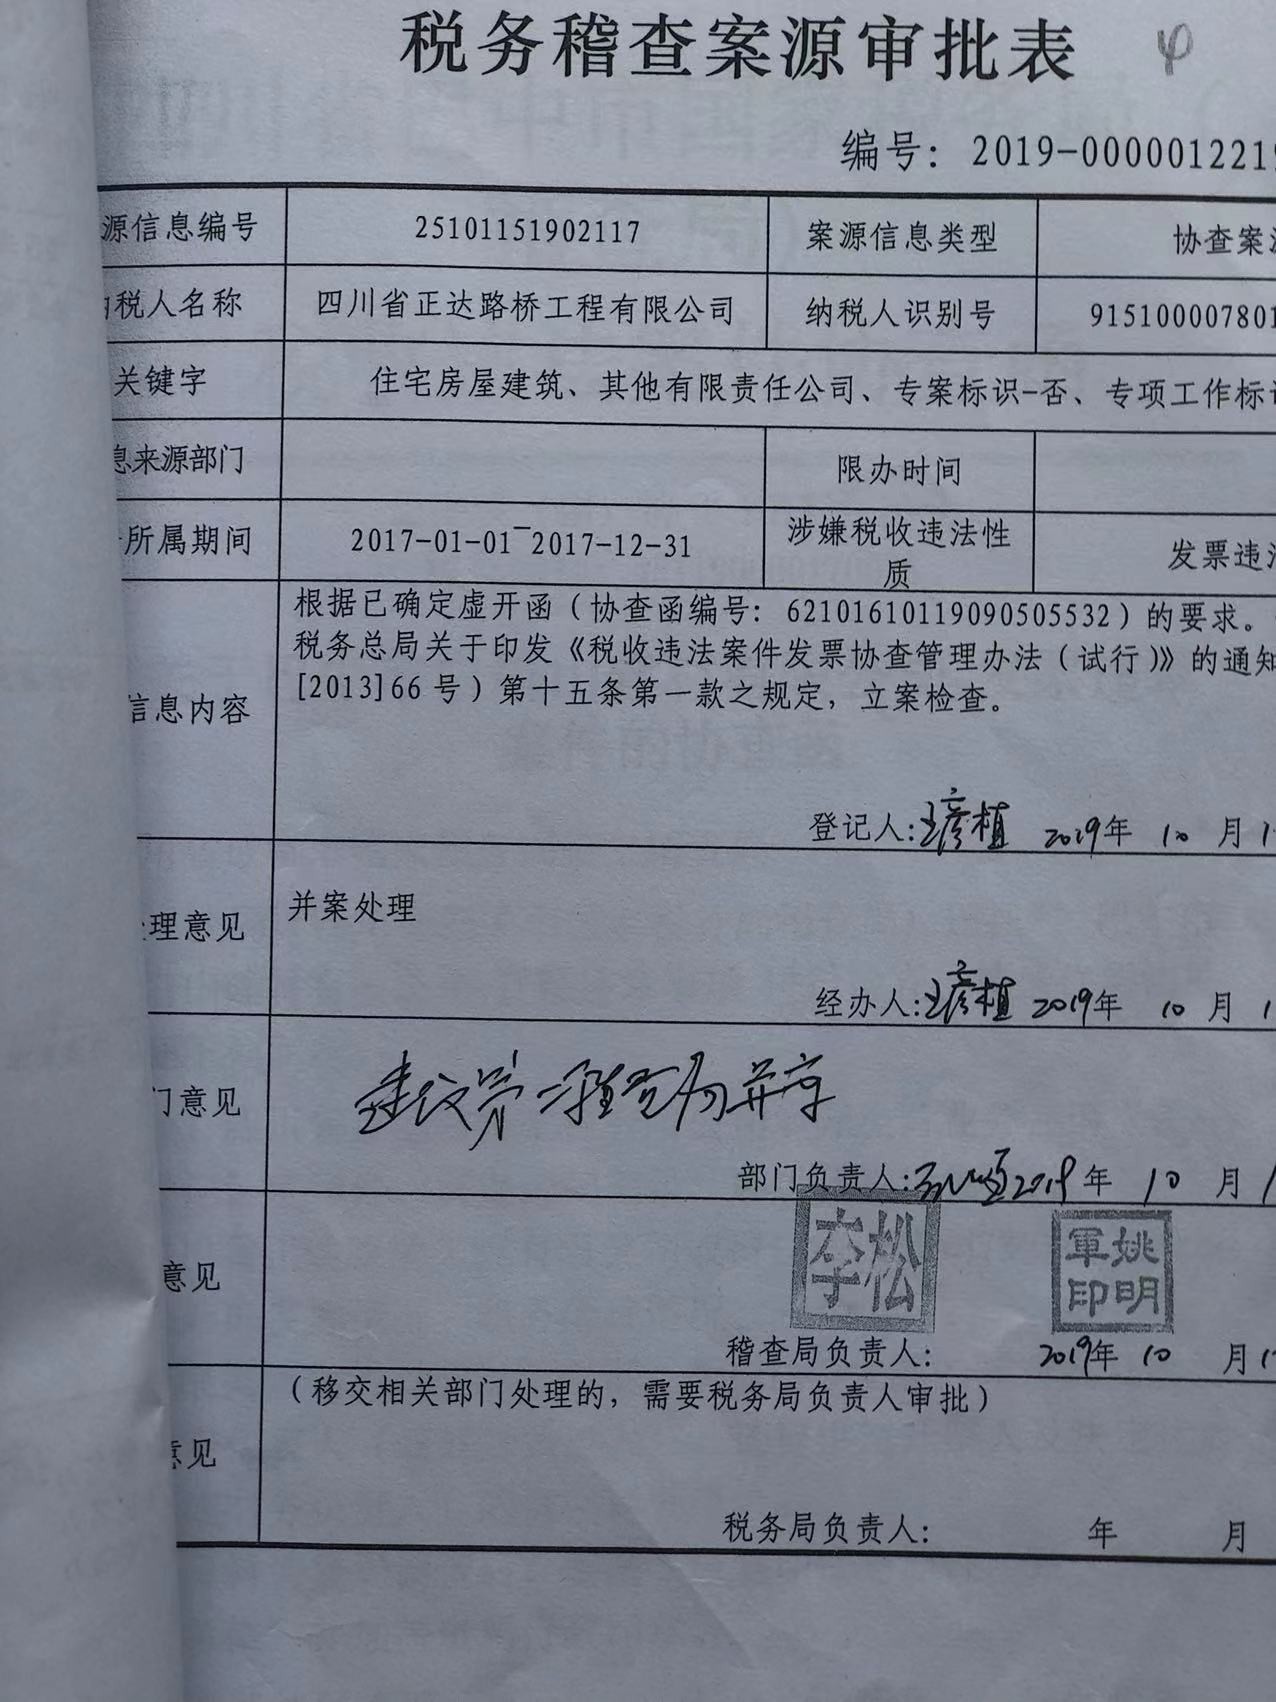 税务稽查案源审批表
编号：2019-0000012219
源信息编号 25101151902117 案源信息类型 协查案
税人名称 四川省正达路桥工程有限公司 纳税人识别号 91510000780
关键字 住宅房屋建筑、其他有限责任公司、专案标识-否、专项工作标
息来源部门 限办时间
所属期间 2017-01-01~2017-12-31 涉嫌税收违法性
质 发票违
根据已确定虚开函（协查函编号：62101610119090505532）的要求。
税务总局关于印发《税收违法案件发票协查管理办法（试行）》的通知
[2013]66号）第十五条第一款之规定，立案检查。
信息内容
登记人：王彦植 2019年 10 月 1
理意见 并案处理
经办人：王彦植 2019年 10 月 1
门意见 建议第一稽查局并案
部门负责人： 2019年 10 月 1
意见
李松
姚明軍印
稽查局负责人： 2019年 10 月 1
（移交相关部门处理的，需要税务局负责人审批）
意见
税务局负责人： 年 月